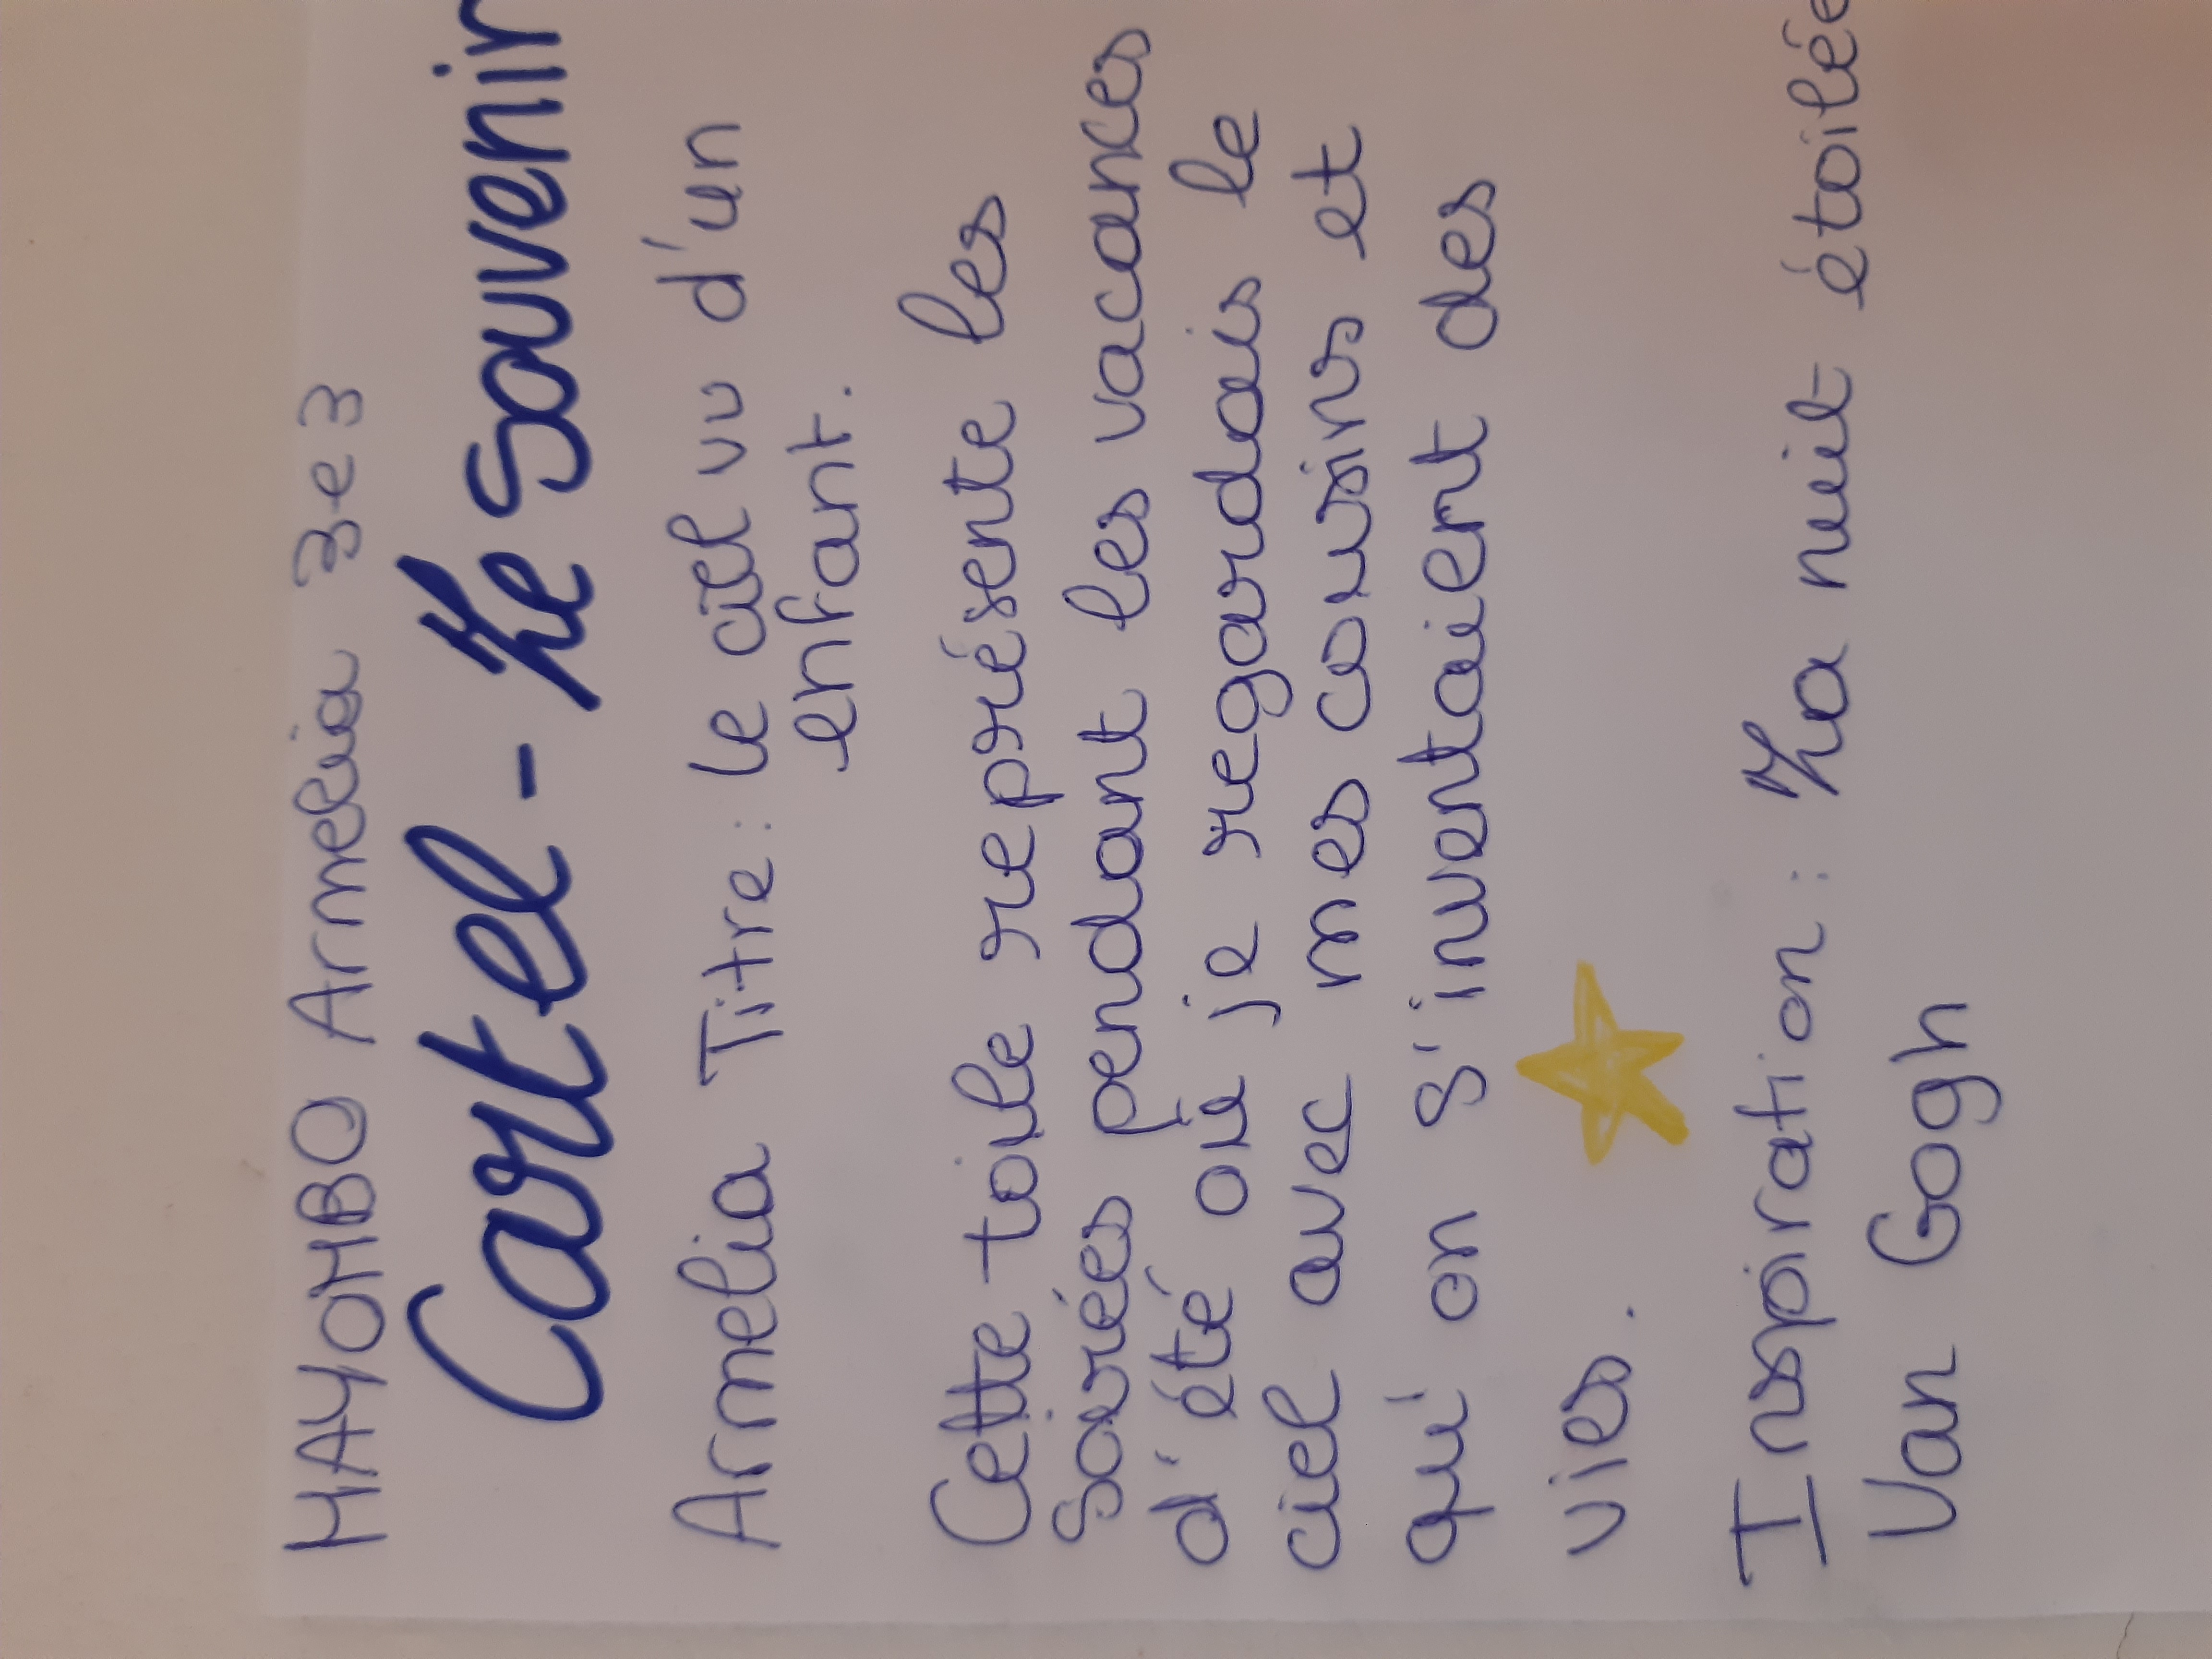 MAYOMBO Armelia 3e3
Cartel - Le souvenir
Armelia Titre: Le ciel vu d'un
enfant.
Cette toile représente les
soirées pendant les vacances
d'été ou je regardais le
ciel avec mes cousins et
qui on s'inventaient des
vies.
Inspiration: La nuit étoilée
Van Gogh